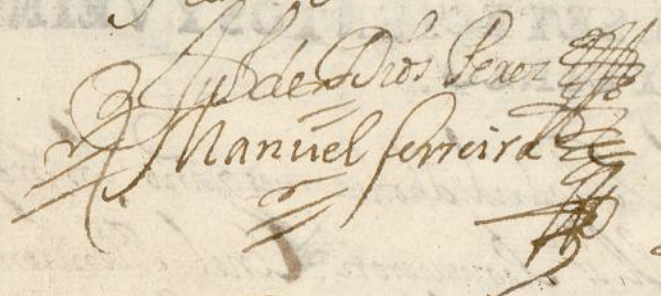 Ju de Dios Perez
Manuel ferreira